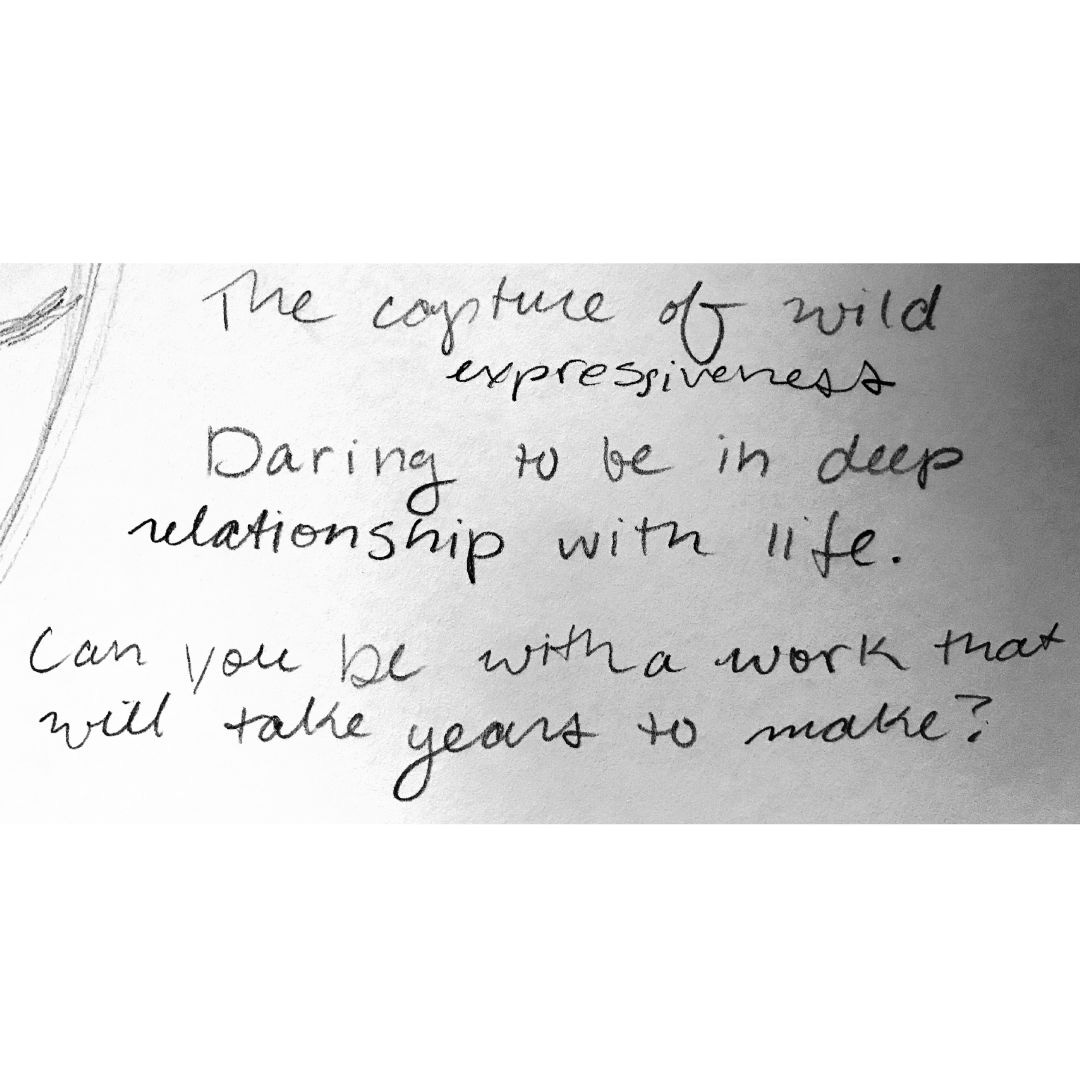 The capture of wild
expressiveness
Daring to be in deep
relationship with life.
Can you be with a work that
will take years to make?